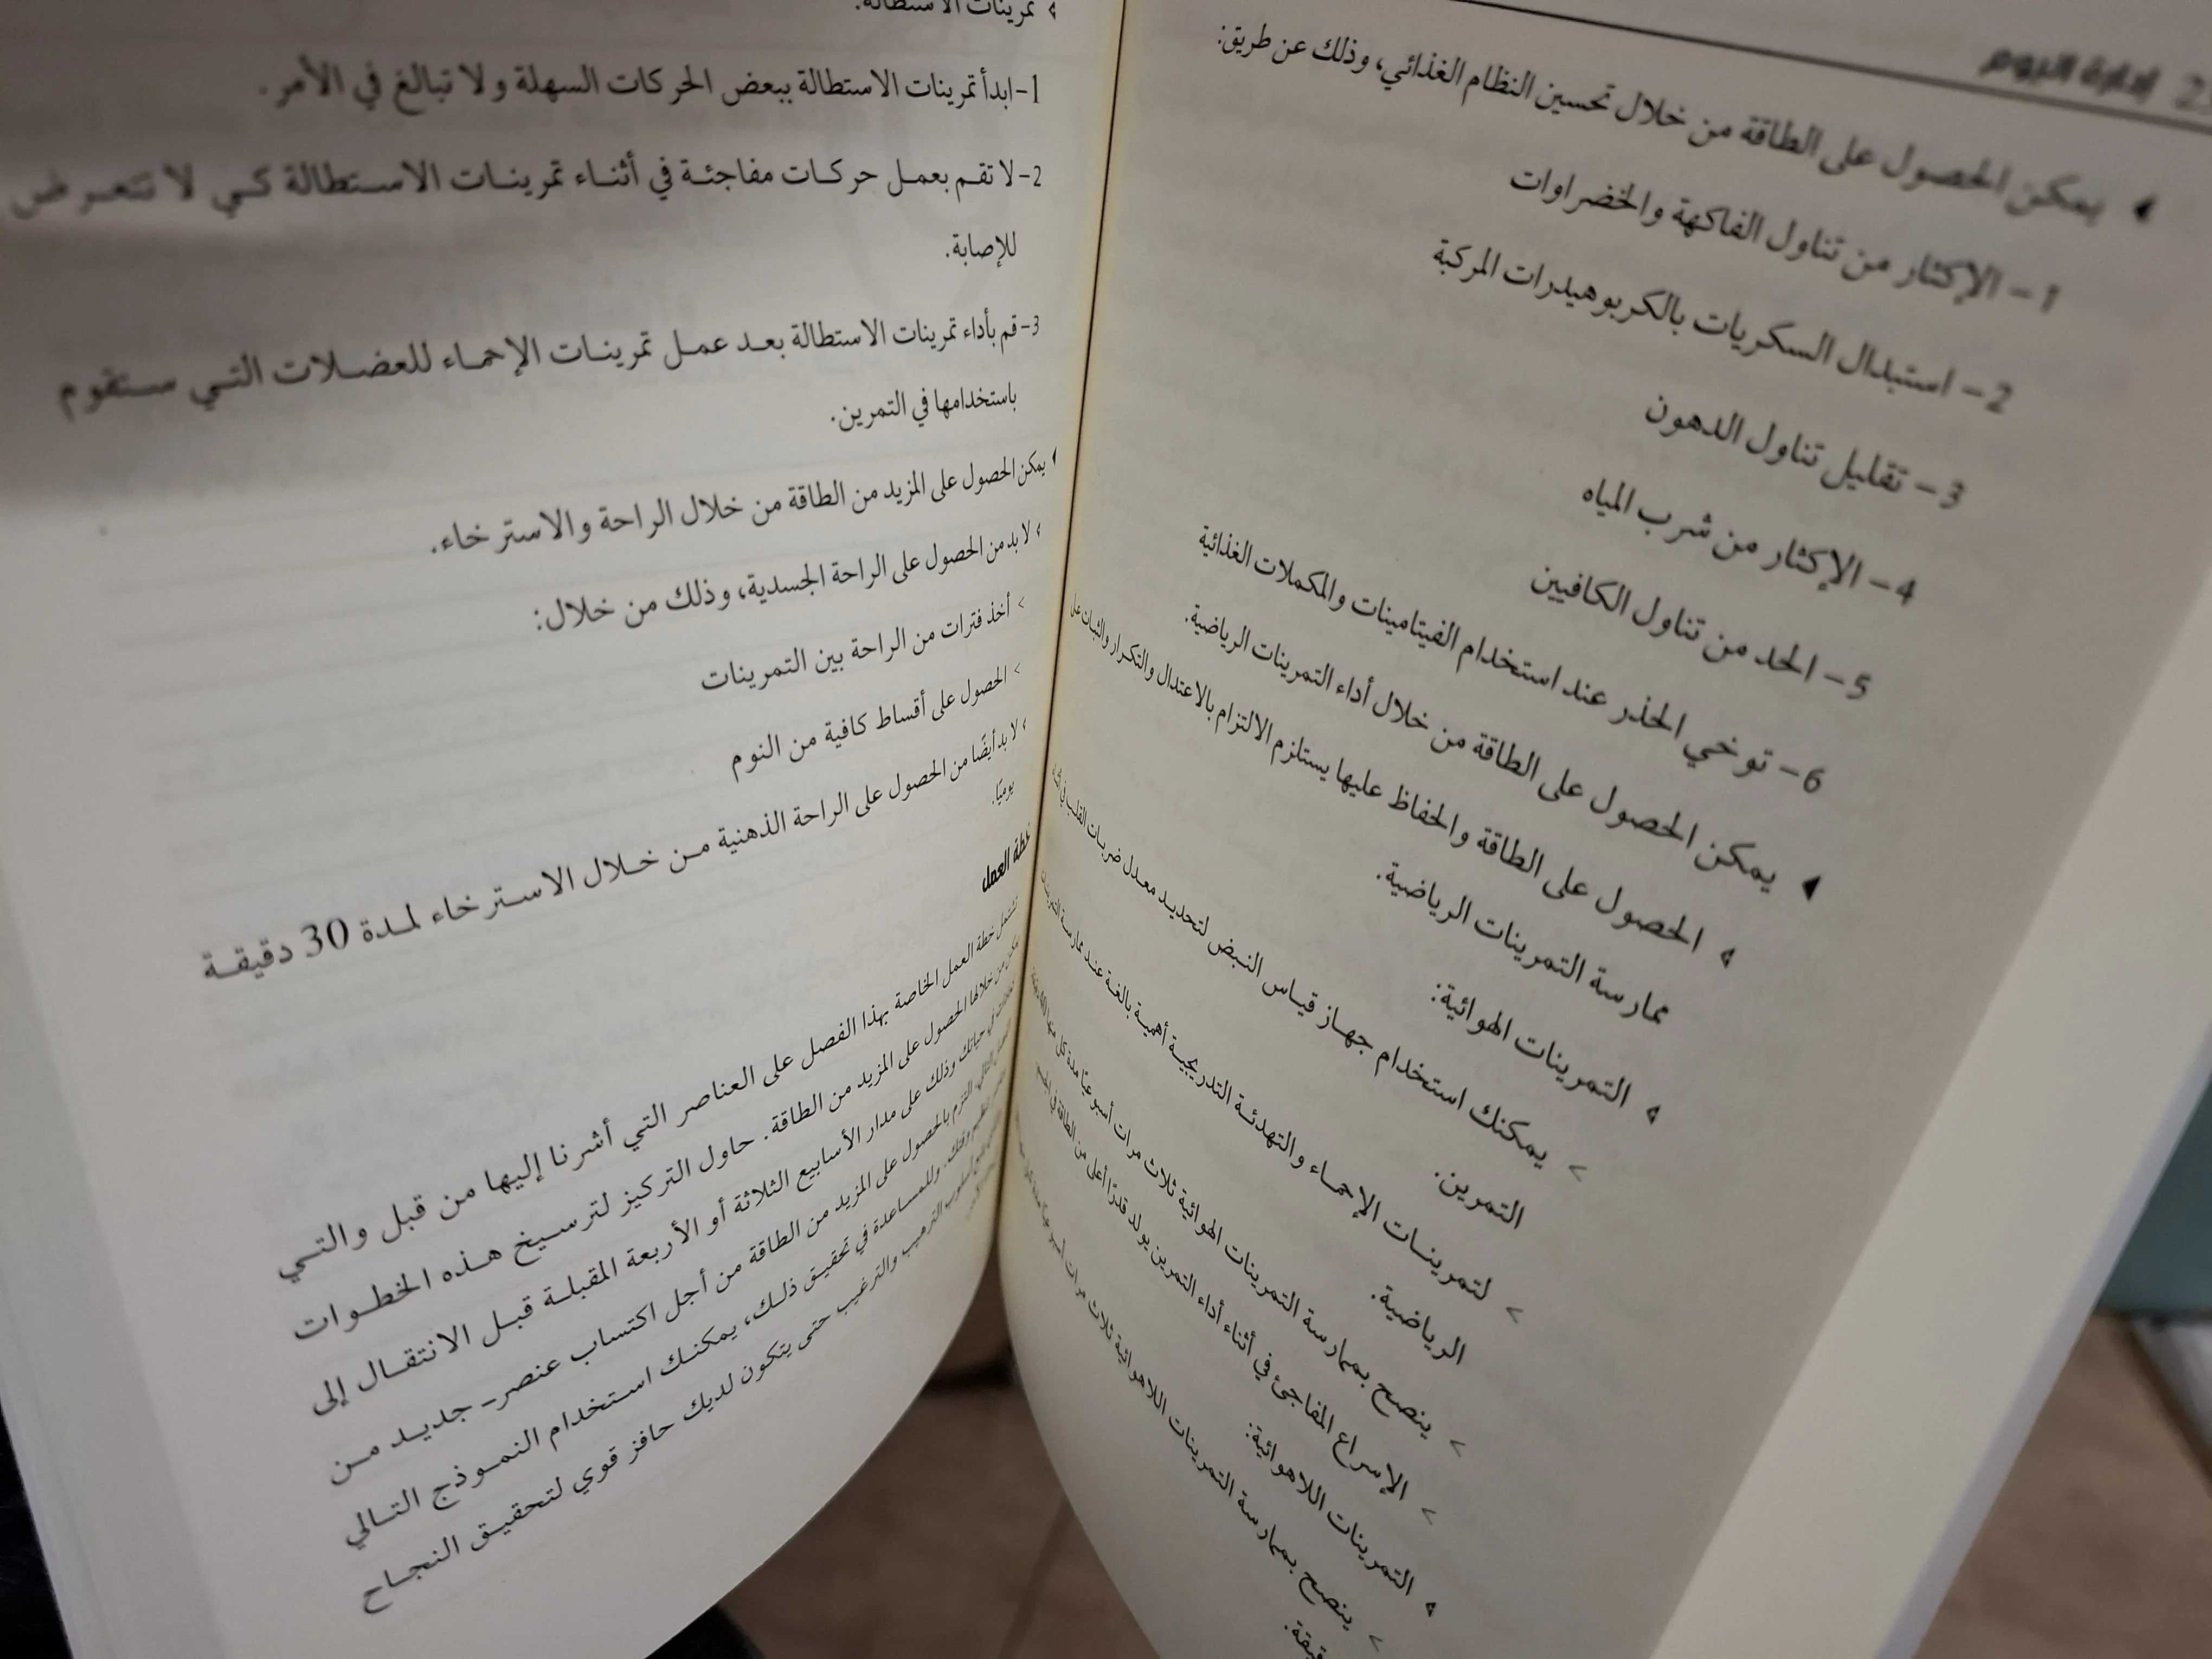 إدارة اليوم
يمكن الحصول على الطاقة من خلال تحسين النظام الغذائي، وذلك عن طريق:
1- الإكثار من تناول الفاكهة والخضراوات
2- استبدال السكريات بالكربوهيدرات المركبة
3- تقليل تناول الدهون
4- الإكثار من شرب المياه
5- الحد من تناول الكافيين
6- توخي الحذر عند استخدام الفيتامينات والمكملات الغذائية
يمكن الحصول على الطاقة من خلال أداء التمرينات الرياضية.
الحصول على الطاقة والحفاظ عليها يستلزم الالتزام بالاعتدال والتكرار والثبات على
ممارسة التمرينات الرياضية.
التمرينات الهوائية:
> يمكنك استخدام جهاز قياس النبض لتحديد معدل ضربات القلب في أثناء
التمرين.
> لتمرينات الإحماء والتهدئة التدريجية أهمية بالغة عند ممارسة التمرينات
الرياضية.
> ينصح بممارسة التمرينات الهوائية ثلاث مرات أسبوعيًا مدة كل منها
> الإسراع المفاجئ في أثناء أداء التمرين يولد قدرًا أعلى من الطاقة في الجسم
التمرينات اللاهوائية:
> ينصح بممارسة التمرينات اللاهوائية ثلاث مرات
دقيقة.
تمرينات الاستطالة:
1- ابدأ تمرينات الاستطالة ببعض الحركات السهلة ولا تبالغ في الأمر.
2- لا تقم بعمل حركات مفاجئة في أثناء تمرينات الاستطالة كي لا تتعرض
للإصابة.
3- قم بأداء تمرينات الاستطالة بعد عمل تمرينات الإحماء للعضلات التي ستقوم
باستخدامها في التمرين.
يمكن الحصول على المزيد من الطاقة من خلال الراحة والاسترخاء.
لا بد من الحصول على الراحة الجسدية، وذلك من خلال:
> أخذ فترات من الراحة بين التمرينات
> الحصول على أقساط كافية من النوم
لا بد أيضًا من الحصول على الراحة الذهنية من خلال الاسترخاء لمدة 30 دقيقة
يوميًا.
خطة العمل
تشتمل خطة العمل الخاصة بهذا الفصل على العناصر التي أشرنا إليها من قبل والتي
يمكن من خلالها الحصول على المزيد من الطاقة. حاول التركيز لترسيخ هذه الخطوات
في حياتك وذلك على مدار الأسابيع الثلاثة أو الأربعة المقبلة قبل الانتقال إلى
التزم بالحصول على المزيد من الطاقة من أجل اكتساب عنصر جديد من
وقتك. وللمساعدة في تحقيق ذلك، يمكنك استخدام النموذج التالي
أسلوب الترهيب والترغيب حتى يتكون لديك حافز قوي لتحقيق النجاح